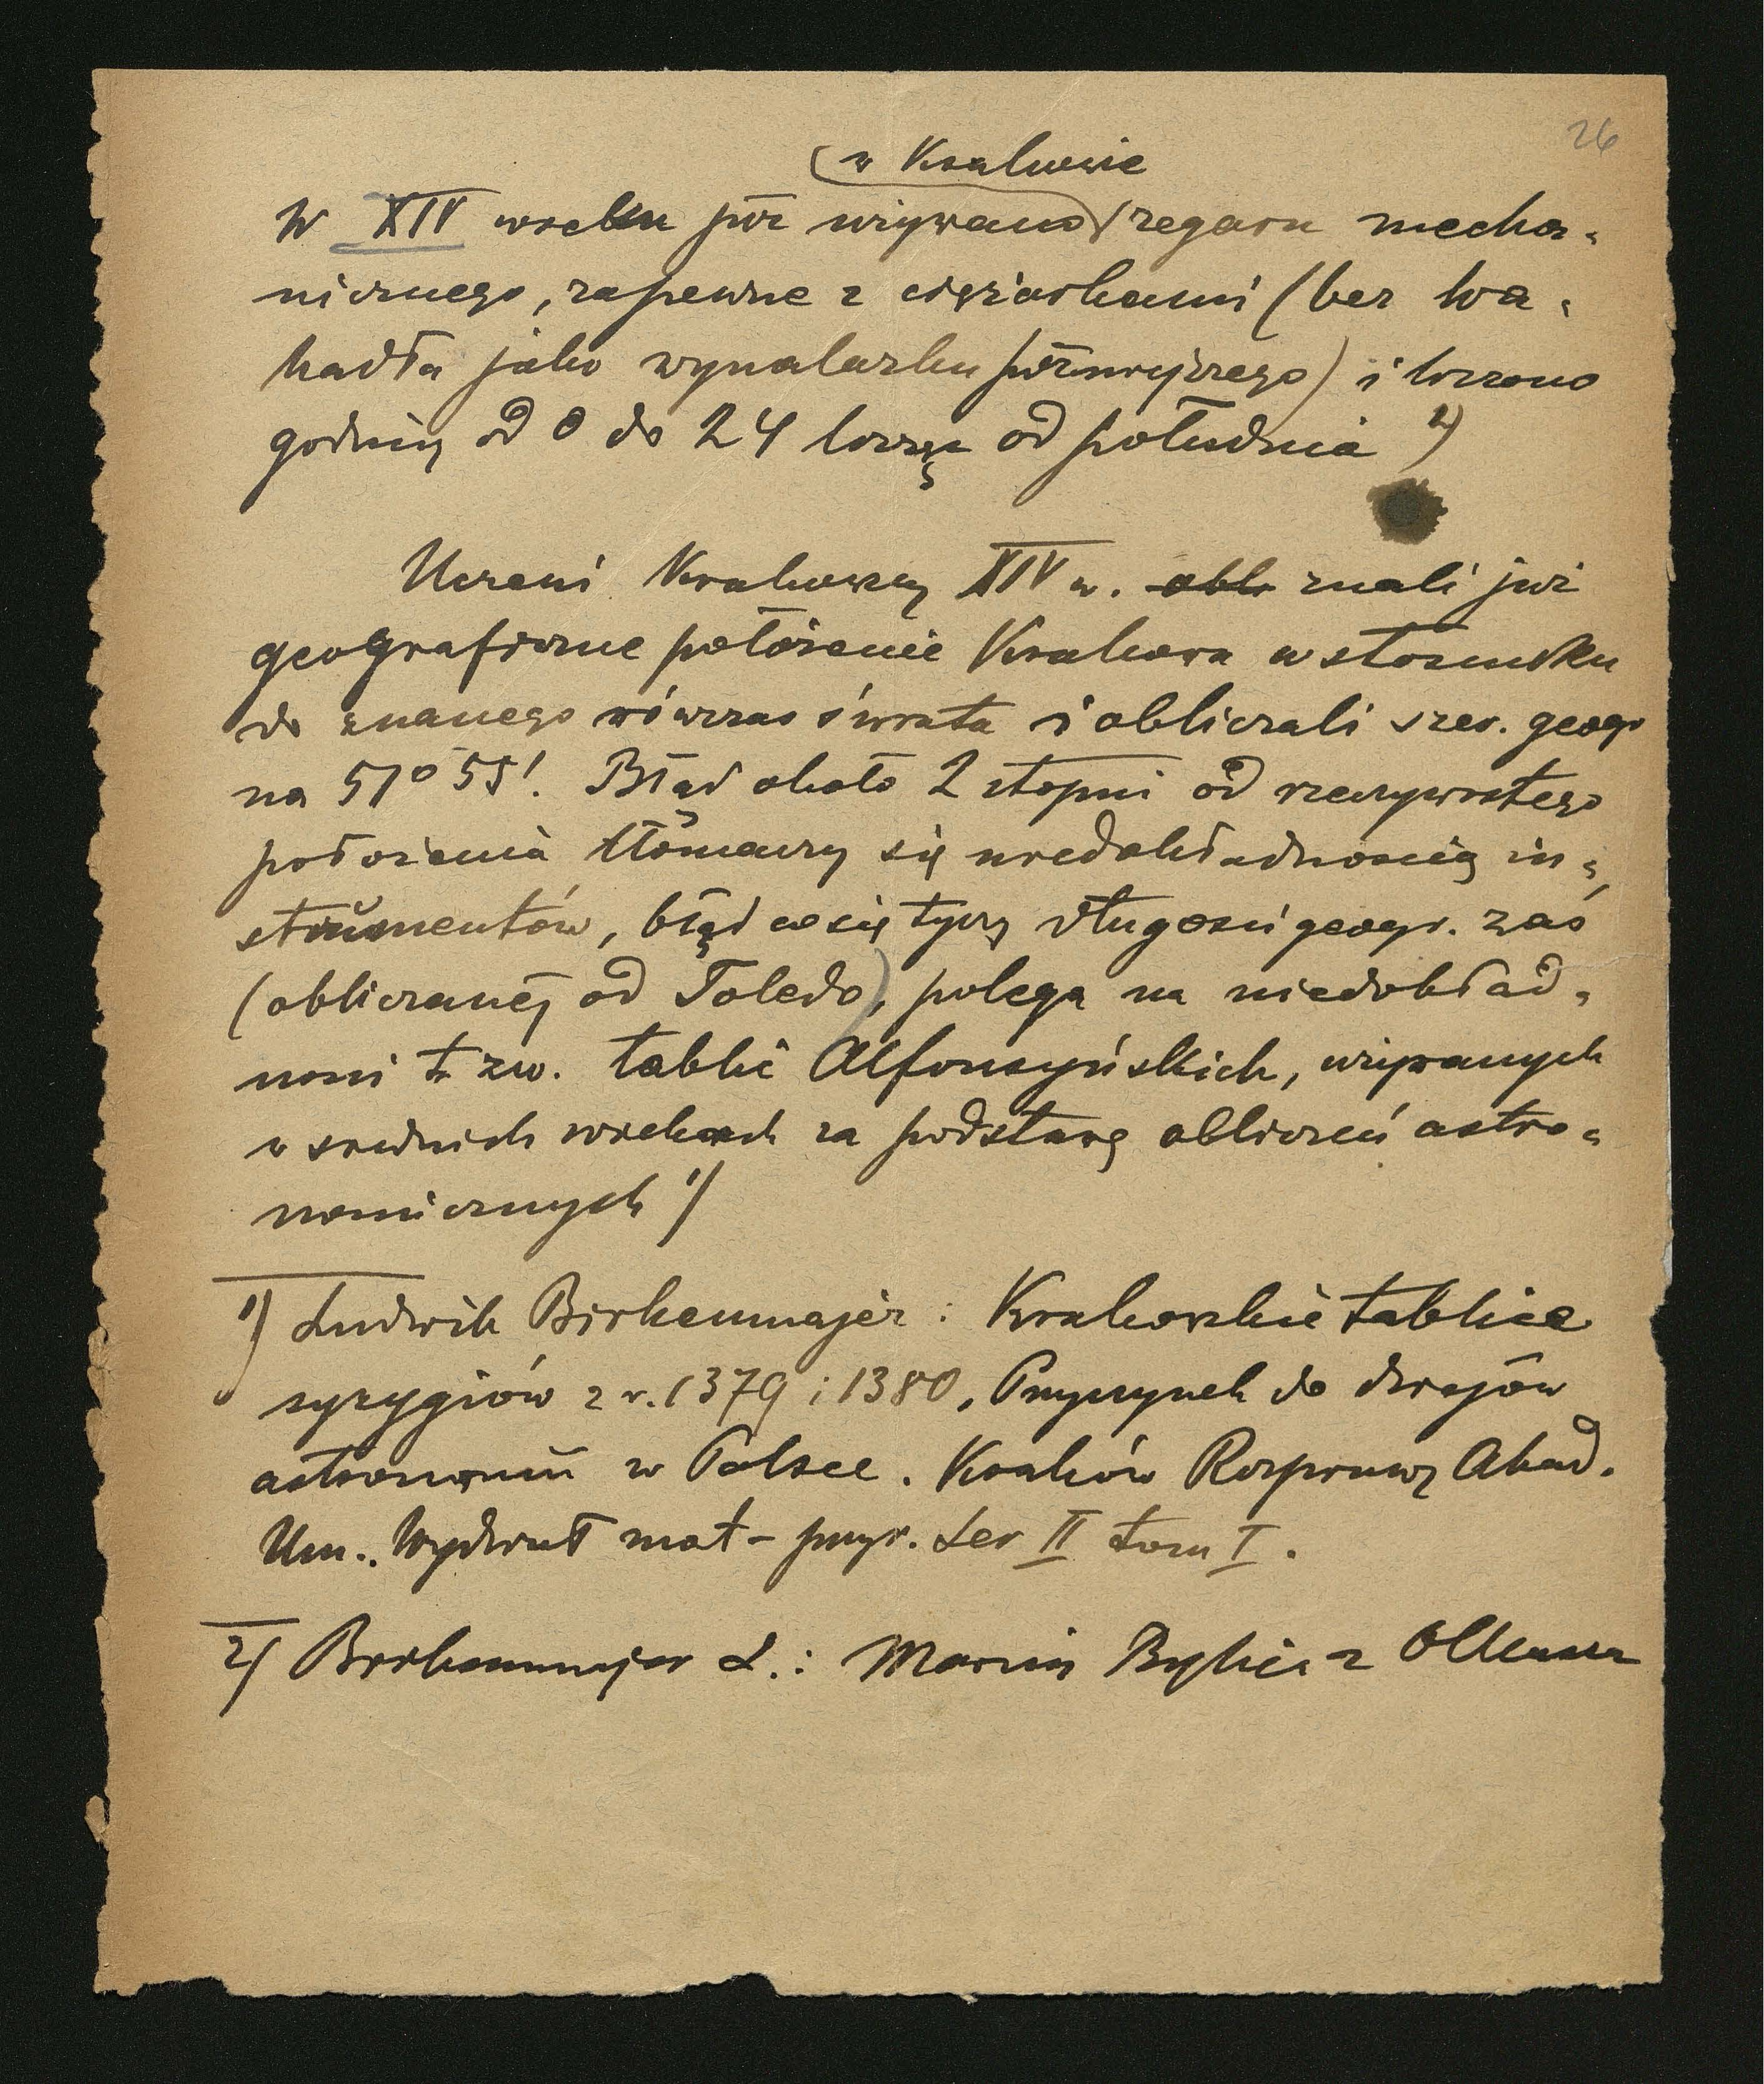 26
w Krakowie
W XIV wieku już używano zegaru mecha-
nicznego, zapewne z ciężarkami (bez wa-
hadła jako wynalazku późniejszego) i liczono
godziny od 0 do 24 licząc od południa 2)
Uczeni Krakowscy XIV w. obli znali już
geograficzne położenie Krakowa w stosunku
do znanego wówczas świata i obliczali szer. geogr
na 51° 55'. Błąd około 2 stopni od rzeczywistego
położenia tłómaczy się niedokładnością in-
strumentów, błąd co się tyczy długości geogr. zaś
(obliczanej od Toledo), polega na niedokład-
ności t. zw. tablic Alfonsyńskich, używanych
w średnich wiekach za podstawę obliczeń astro-
nomicznych 1)
1) Ludwik Birkenmajer: Krakowskie tablice
syzygiów z r. 1379 i 1380, Przyczynek do dziejów
astronomii w Polsce. Kraków Rozprawy Akad.
Um.. Wydział mat-przyr. Ser II tom I.
2) Birkenmajer L.: Marcin Bylica z Olkusza